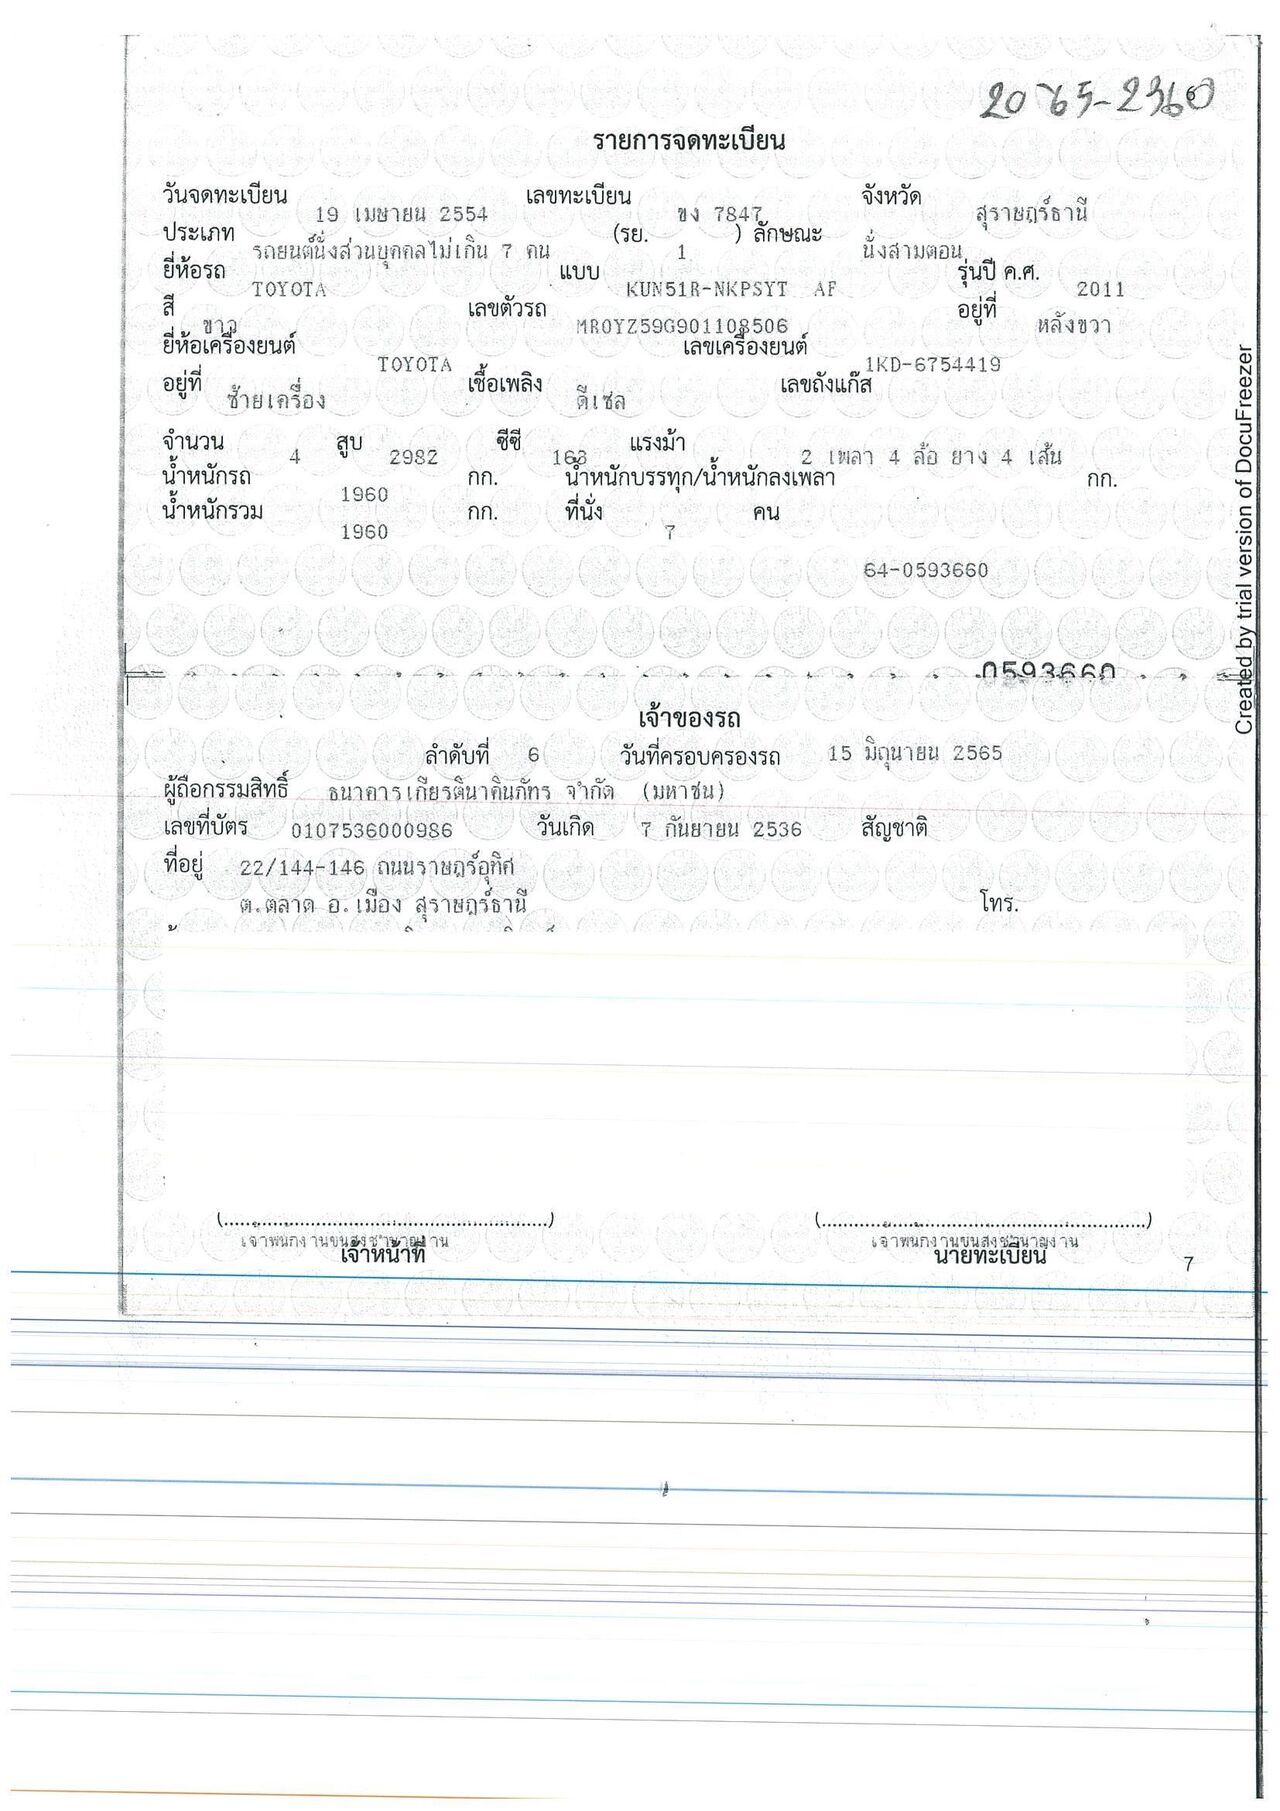 รายการจดทะเบียน
วันจดทะเบียน 19 เมษายน 2554 เลขทะเบียน ขง 7847 จังหวัด สุราษฎร์ธานี
ประเภท รถยนต์นั่งส่วนบุคคลไม่เกิน 7 คน (รย. 1 ) ลักษณะ นั่งสามตอน
ยี่ห้อรถ TOYOTA แบบ KUN51R-NKPSYT AF รุ่นปี ค.ศ. 2011
สี ขาว เลขตัวรถ MR0YZ59G901108506 อยู่ที่ หลังขวา
ยี่ห้อเครื่องยนต์ TOYOTA เลขเครื่องยนต์ 1KD-6754419
อยู่ที่ ซ้ายเครื่อง เชื้อเพลิง ดีเซล เลขถังแก๊ส
จำนวน 4 สูบ 2982 ซีซี 163 แรงม้า 2 เพลา 4 ล้อ ยาง 4 เส้น
น้ำหนักรถ 1960 กก. น้ำหนักบรรทุก/น้ำหนักลงเพลา กก.
น้ำหนักรวม 1960 กก. ที่นั่ง 7 คน
64-0593660
0593660
Created by trial version of DocuFreezer
เจ้าของรถ
ลำดับที่ 6 วันที่ครอบครองรถ 15 มิถุนายน 2565
ผู้ถือกรรมสิทธิ์ ธนาคารเกียรตินาคินภัทร จำกัด (มหาชน)
เลขที่บัตร 0107536000986 วันเกิด 7 กันยายน 2536 สัญชาติ
ที่อยู่ 22/144-146 ถนนราษฎร์อุทิศ
ต.ตลาด อ.เมือง สุราษฎร์ธานี โทร.
(......................................................) (......................................................)
เจ้าพนักงานขนส่งชำนาญงาน เจ้าพนักงานขนส่งชำนาญงาน
เจ้าหน้าที่ นายทะเบียน 7